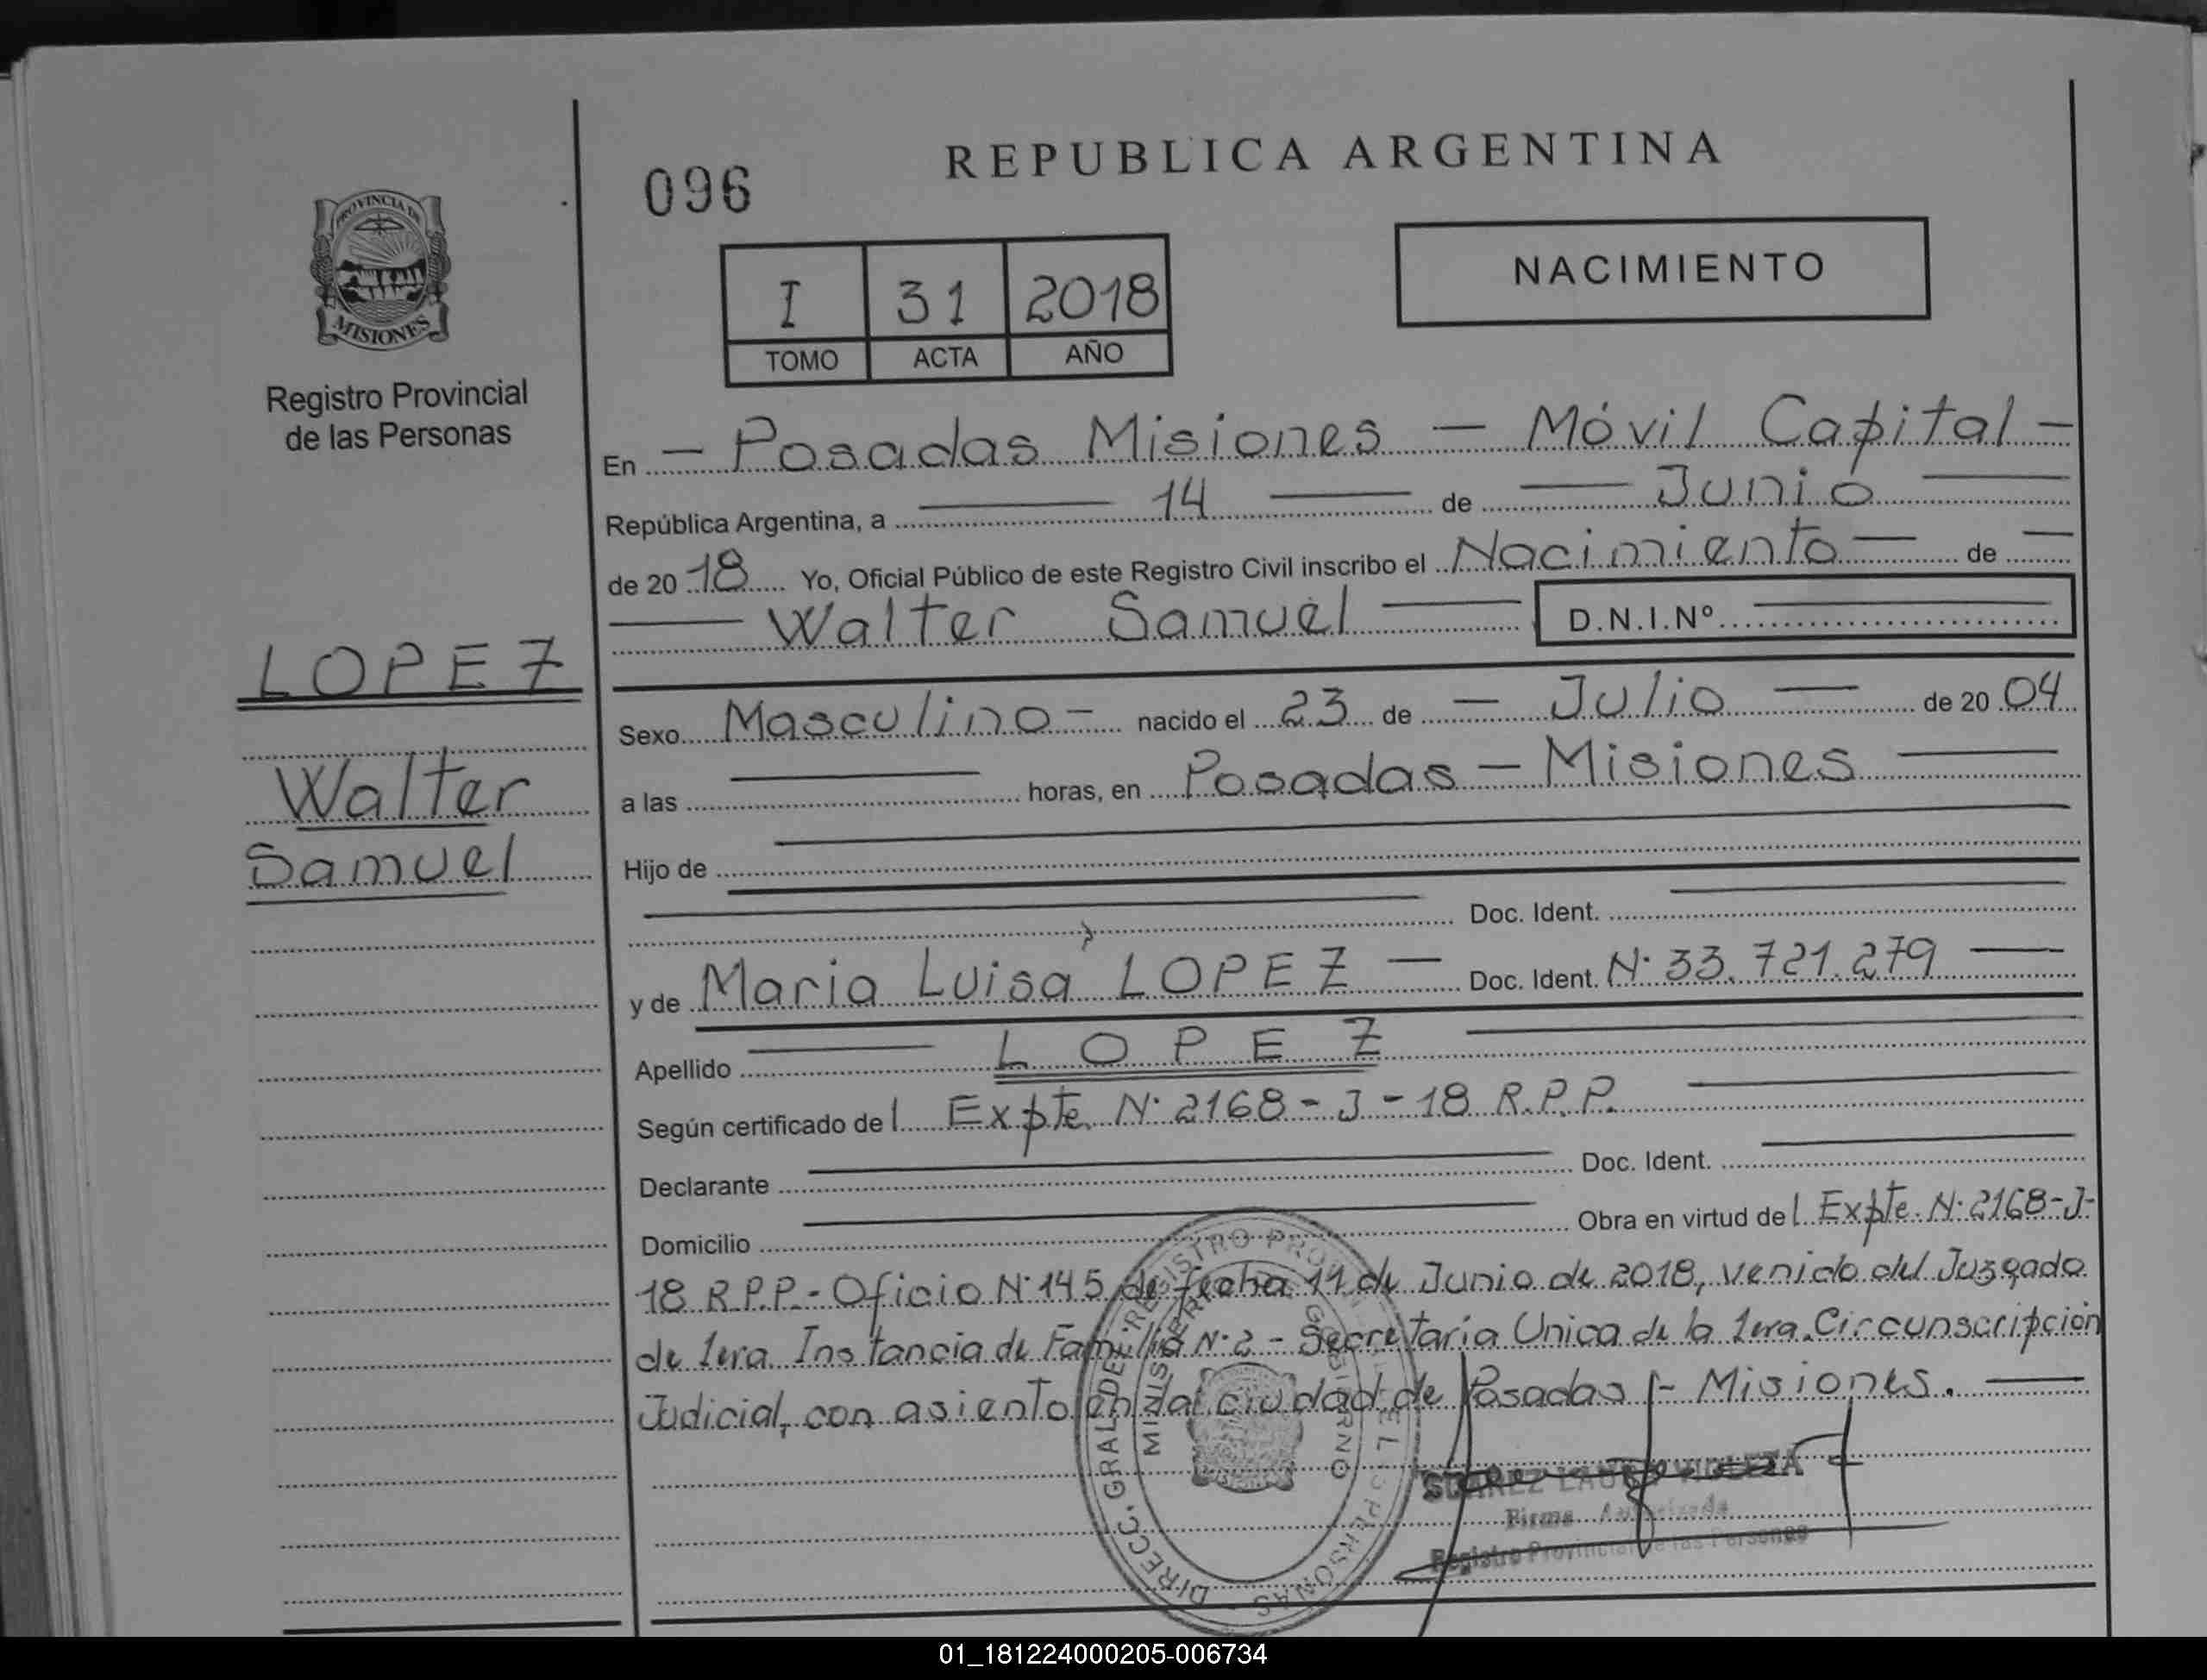 REPUBLICA ARGENTINA
096
PROVINCIA DE
MISIONES
Registro Provincial
de las Personas
I 31 2018
TOMO ACTA AÑO
NACIMIENTO
En — Posadas Misiones — Móvil Capital —
República Argentina, a — 14 — de — Junio —
de 20 18 Yo, Oficial Público de este Registro Civil inscribo el Nacimiento — de —
— Walter Samuel — D.N.I.Nº —
LOPEZ
Walter
Samuel
Sexo Masculino — nacido el 23 de — Julio — de 20 04
a las — horas, en Posadas — Misiones —
Hijo de —
— Doc. Ident. —
y de Maria Luisa LOPEZ — Doc. Ident. N· 33.721.279 —
Apellido — LOPEZ —
Según certificado del Expte. N· 2168-J-18 R.P.P. —
Declarante — Doc. Ident. —
Domicilio — Obra en virtud del Expte. N· 2168-J-
18 R.P.P.- Oficio N· 145 de fecha 11 de Junio de 2018, venido del Juzgado
de 1era. Instancia de Familia N· 2 - Secretaria Unica de la 1era. Circunscripción
Judicial, con asiento en la ciudad de Posadas - Misiones. —
DIRECC. GRAL DE REGISTRO PROVINCIAL DE LAS PERSONAS
MINISTERIO DE GOBIERNO
SUAREZ LAURA VIOLETA
Firma Autorizada
Registro Provincial de las Personas
01_181224000205-006734